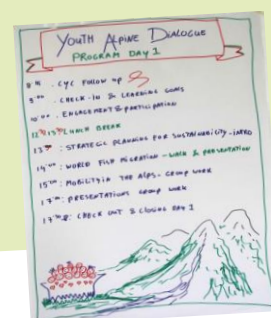 YOUTH ALPINE DIALOGUE
PROGRAM DAY 1
8³⁰ : CYC FOLLOW UP
9⁰⁰ : CHECK-IN & LEARNING GOALS
10⁰⁰ : ENGAGEMENT & PARTICIPATION
LUNCH BREAK
13³⁰ : STRATEGIC PLANNING FOR SUSTAINABILITY - INTRO
14⁰⁰ : WORLD FILE MIGRATION - WALK & PRESENTATION
15⁰⁰ : MOBILITY IN THE ALPS - GROUP WORK
17⁰⁰ : PRESENTATIONS GROUP WORK
CHECK OUT & CLOSING DAY 1